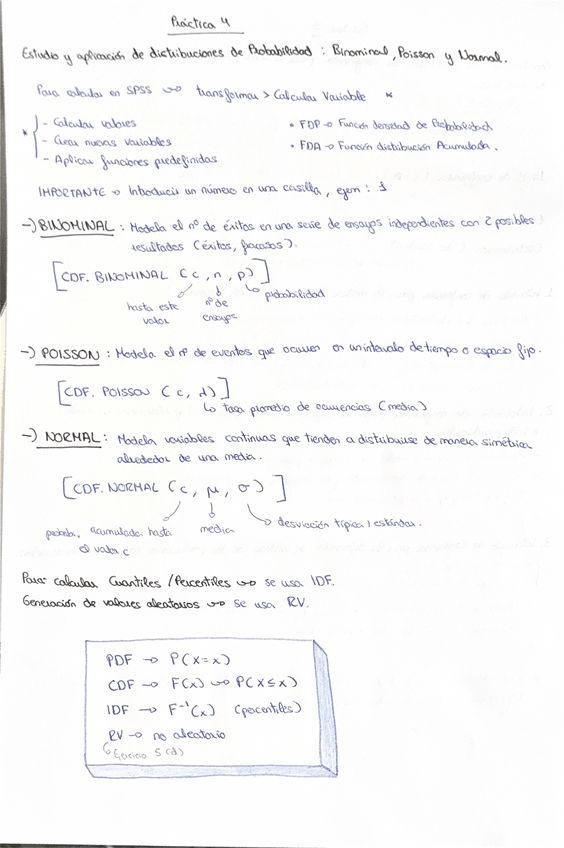 Práctica 4
Estudio y aplicación de distribuciones de Probabilidad : Binominal, Poisson y Normal.
Para calcular en SPSS → transformar > Calcular Variable *
* - Calcular valores
- Crear nuevas variables
- Aplicar funciones predefinidas
• FDP → Función densidad de Probabilidad
• FDA → Función distribución Acumulada.
IMPORTANTE → Introducir un número en una casilla, ejem : 1
→) BINOMINAL : Modela el nº de éxitos en una serie de ensayos independientes con 2 posibles
resultados (éxitos, fracasos).
[CDF. BINOMINAL (c, n, p)]
hasta este valor
nº de ensayos
probabilidad
→) POISSON : Modela el nº de eventos que ocurren en un intervalo de tiempo o espacio fijo.
[CDF. POISSON (c, λ)]
↳ tasa promedio de ocurrencias (media)
→) NORMAL : Modela variables continuas que tienden a distribuirse de manera simétrica
alrededor de una media.
[CDF. NORMAL (c, μ, σ)]
probabi. acumulada hasta
el valor c
media
desviación típica / estándar.
Para calcular Cuantiles / Percentiles → se usa IDF.
Generación de valores aleatorios → se usa RV.
PDF → P(X=x)
CDF → F(x) → P(X≤x)
IDF → F⁻¹(x) (percentiles)
RV → no aleatorio
↳ Ejercicio 5 (d)